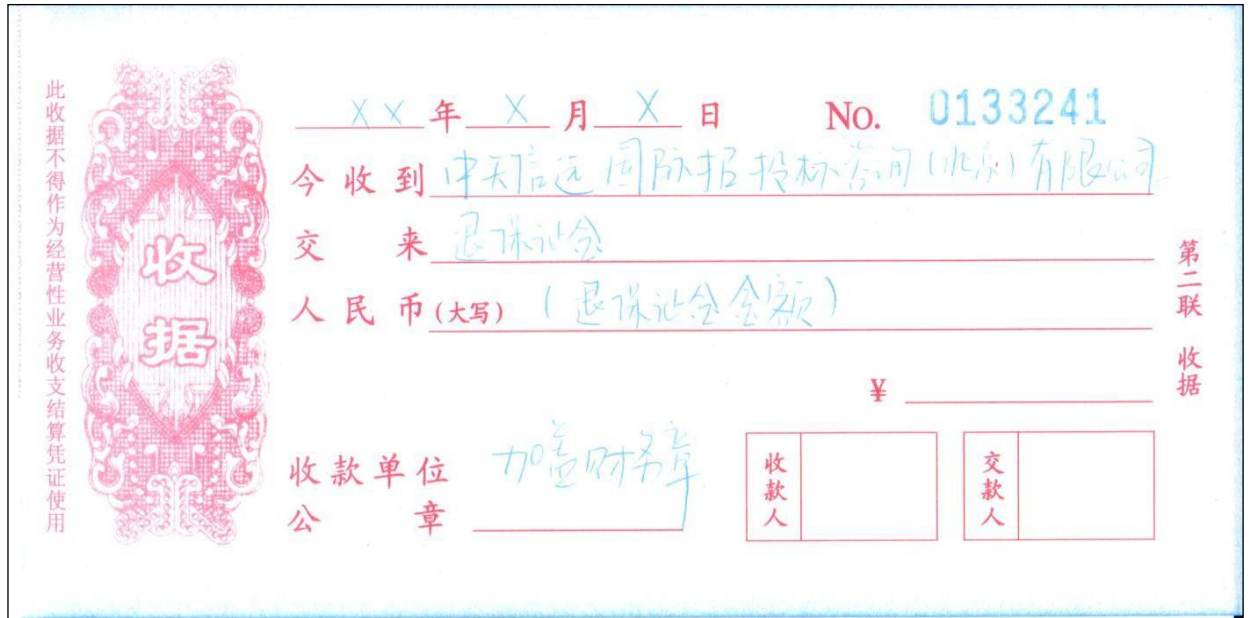 此收据不得作为经营性业务收支结算凭证使用
收据
XX年X月X日 No. 0133241
今收到 中天信远国际招投标咨询(北京)有限公司
交来 退保证金
人民币(大写) (退保证金金额)
¥
收款单位公章 加盖财务章
收款人
交款人
第二联 收据